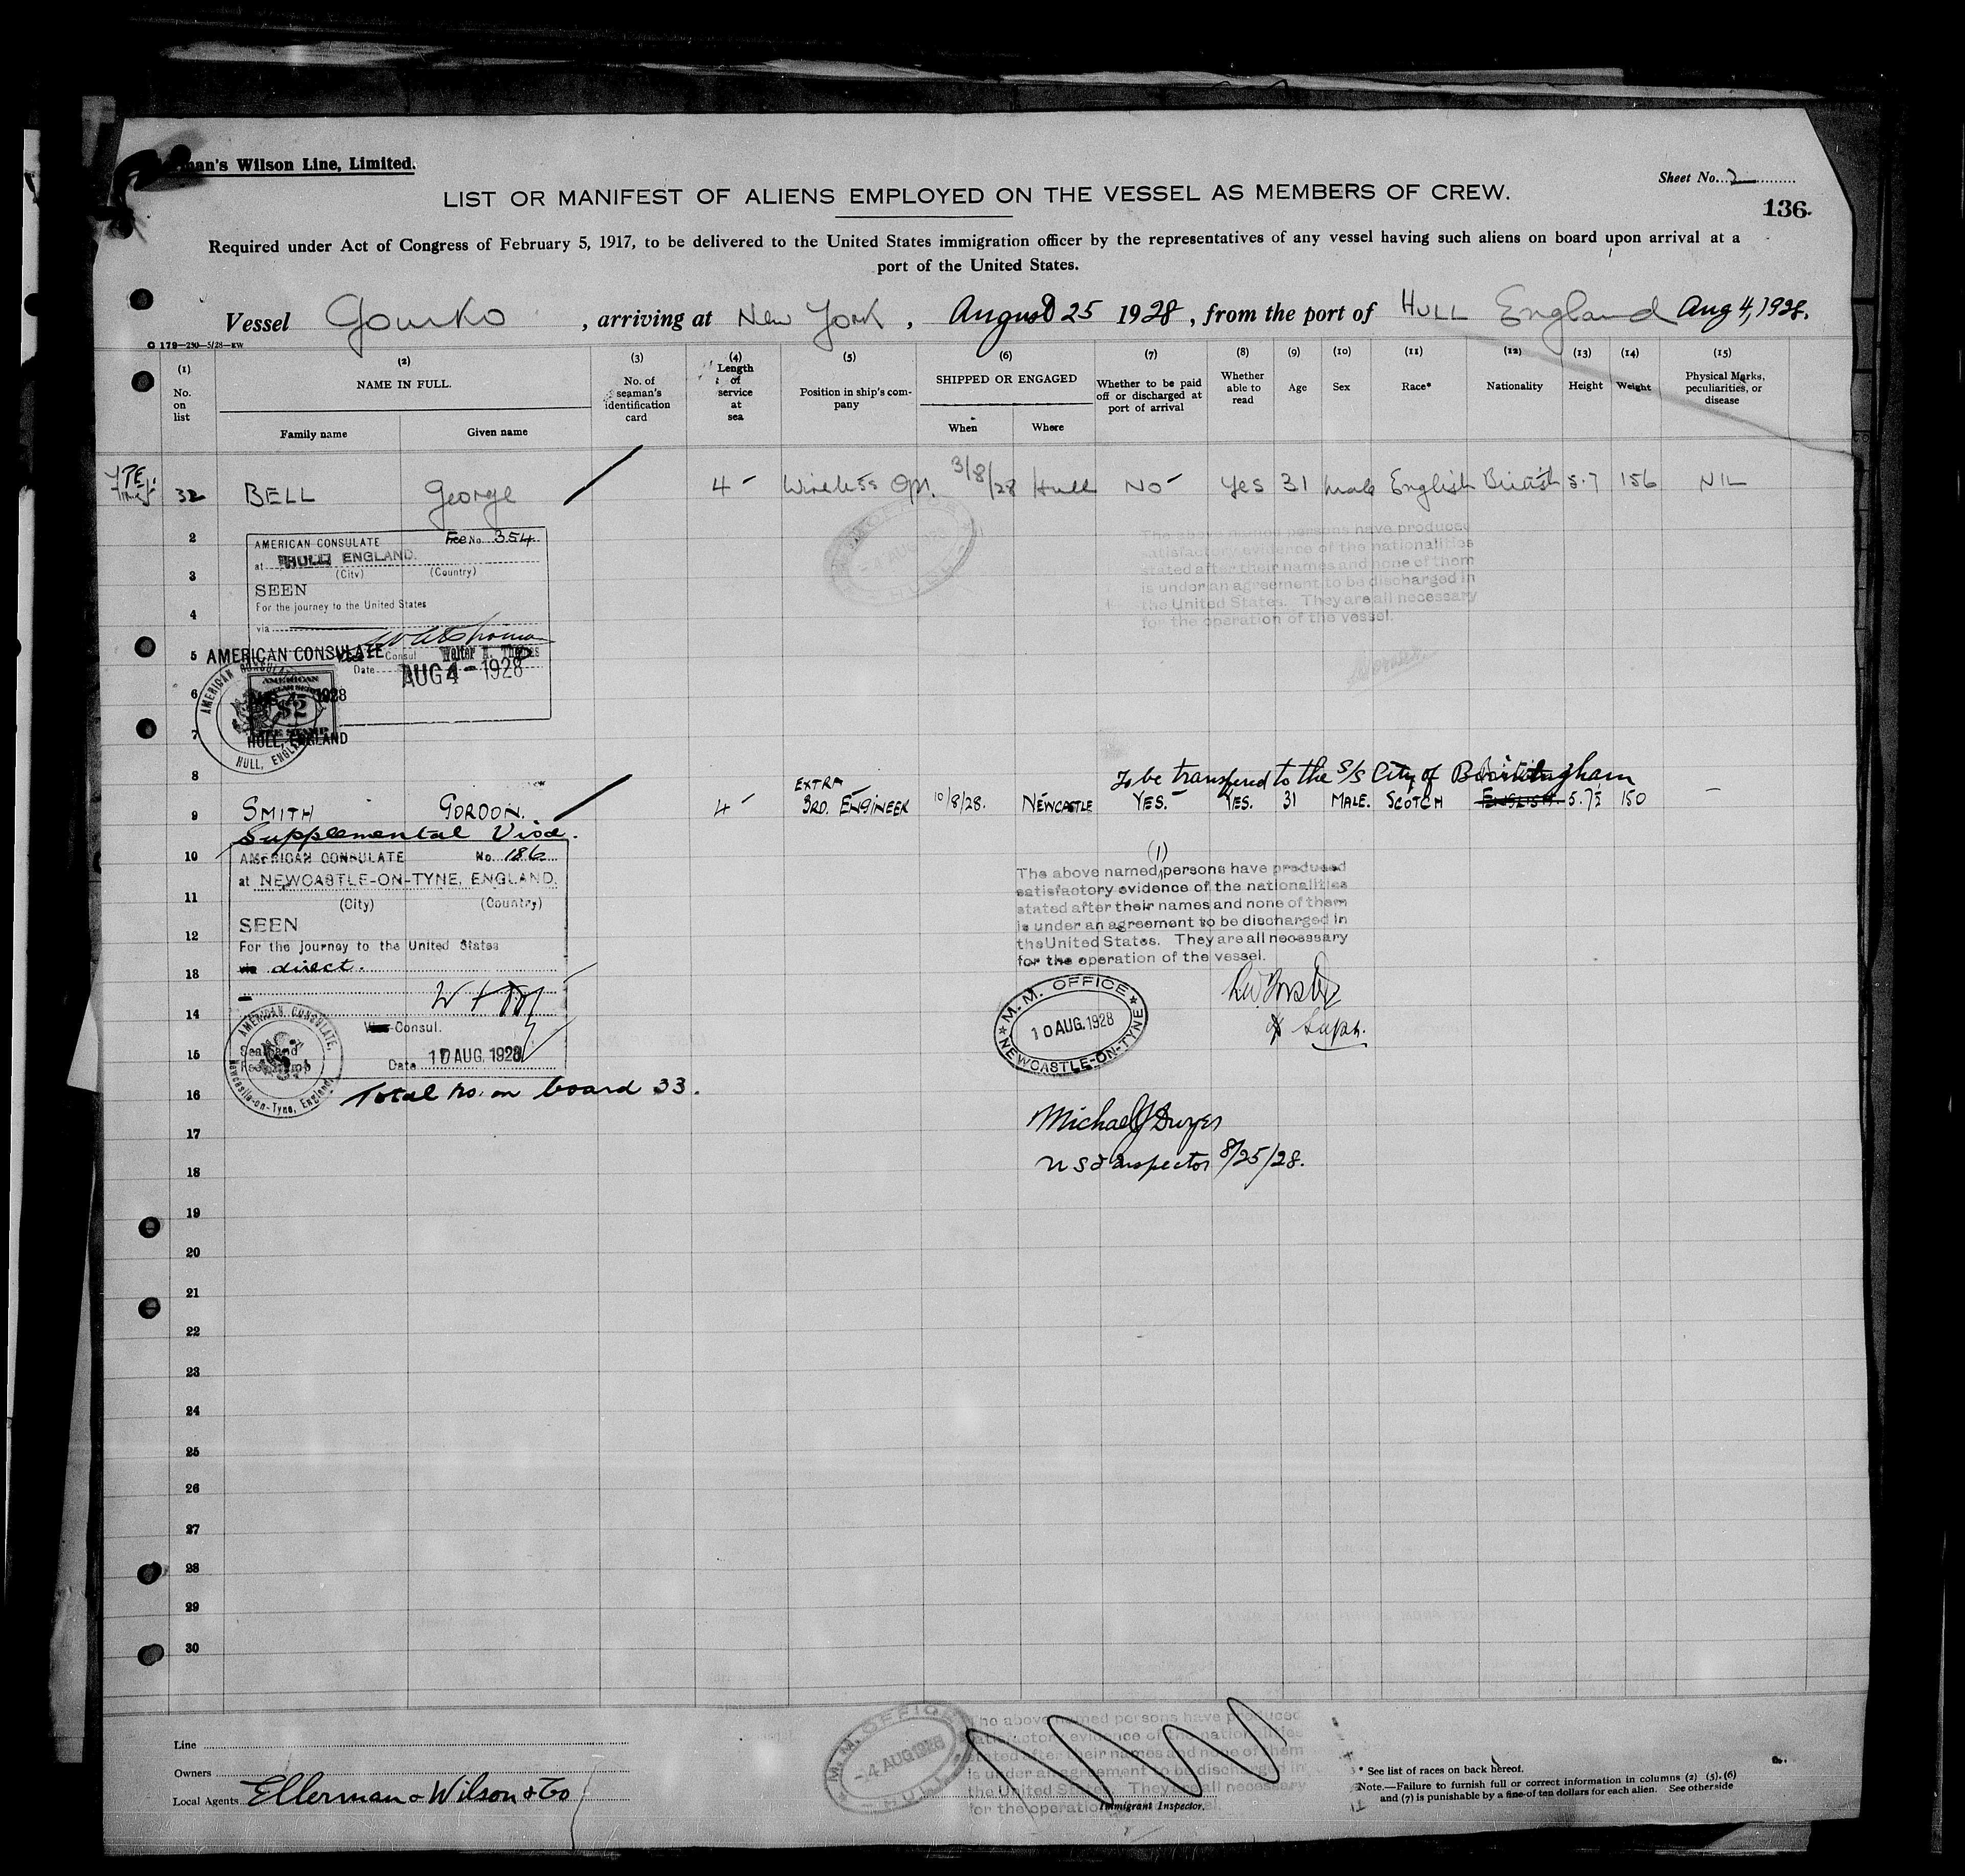 man's Wilson Line, Limited.
Sheet No. 2
LIST OR MANIFEST OF ALIENS EMPLOYED ON THE VESSEL AS MEMBERS OF CREW.
136.
Required under Act of Congress of February 5, 1917, to be delivered to the United States immigration officer by the representatives of any vessel having such aliens on board upon arrival at a
port of the United States.
Vessel Gourko , arriving at New York , August 25 1928 , from the port of HULL England Aug 4, 1928.
G 179—230—5/28—EW
(1) (2) (3) (4) (5) (6) (7) (8) (9) (10) (11) (12) (13) (14) (15)
No. on list
NAME IN FULL.
Family name Given name
No. of seaman's identification card
Length of service at sea
Position in ship's company
SHIPPED OR ENGAGED
When Where
Whether to be paid off or discharged at port of arrival
Whether able to read
Age Sex Race* Nationality Height Weight
Physical Marks, peculiarities, or disease
32 BELL George 4 - Wireless Opr. 3/8/28 Hull No - Yes 31 Male English British 5.7 156 NIL
2
AMERICAN CONSULATE Fee No. 354
at HULL ENGLAND.
(City) (Country)
3
SEEN
For the journey to the United States
4
via
5
AMERICAN CONSULATE
Consul Walter H.
Date AUG 4 - 1928
6
AMERICAN
1928
$2
FEE STAMP
7
HULL, ENGLAND
AMERICAN CONSULATE HULL, ENGLAND
The above named persons have produced
satisfactory evidence of the nationalities
stated after their names and none of them
is under an agreement to be discharged in
the United States. They are all necessary
for the operation of the vessel.
8
To be transferred to the S/S City of Birmingham
EXTRA
9 SMITH GORDON. 4 - 3RD. ENGINEER 10/8/28. NEWCASTLE YES. - YES. 31 MALE. SCOTCH ENGLISH. 5.7½ 150 -
Supplemental Visa.
10
AMERICAN CONSULATE No. 186
at NEWCASTLE-ON-TYNE, ENGLAND.
11
(City) (Country)
SEEN
12
For the journey to the United States
via direct.
13
14
Consul.
15
Date 10 AUG. 1928
AMERICAN CONSULATE, Newcastle-on-Tyne, England
(1)
The above named persons have produced
satisfactory evidence of the nationalities
stated after their names and none of them
is under an agreement to be discharged in
the United States. They are all necessary
for the operation of the vessel.
M.M. OFFICE
10 AUG. 1928
NEWCASTLE-ON-TYNE
Supt.
16
Total no. on board 33.
Michael J Dwyer
17
U S I Inspector 8/25/28.
18
19
20
21
22
23
24
25
26
27
28
29
30
Line
Owners
Local Agents Ellerman & Wilson & Co
M.M. OFFICE
- 4 AUG 1928
HULL
The above named persons have produced
satisfactory evidence of the nationalities
stated after their names and none of them
is under an agreement to be discharged in
the United States. They are all necessary
for the operation of the vessel.
Immigrant Inspector.
* See list of races on back hereof.
Note.—Failure to furnish full or correct information in columns (2) (5), (6)
and (7) is punishable by a fine of ten dollars for each alien. See otherside